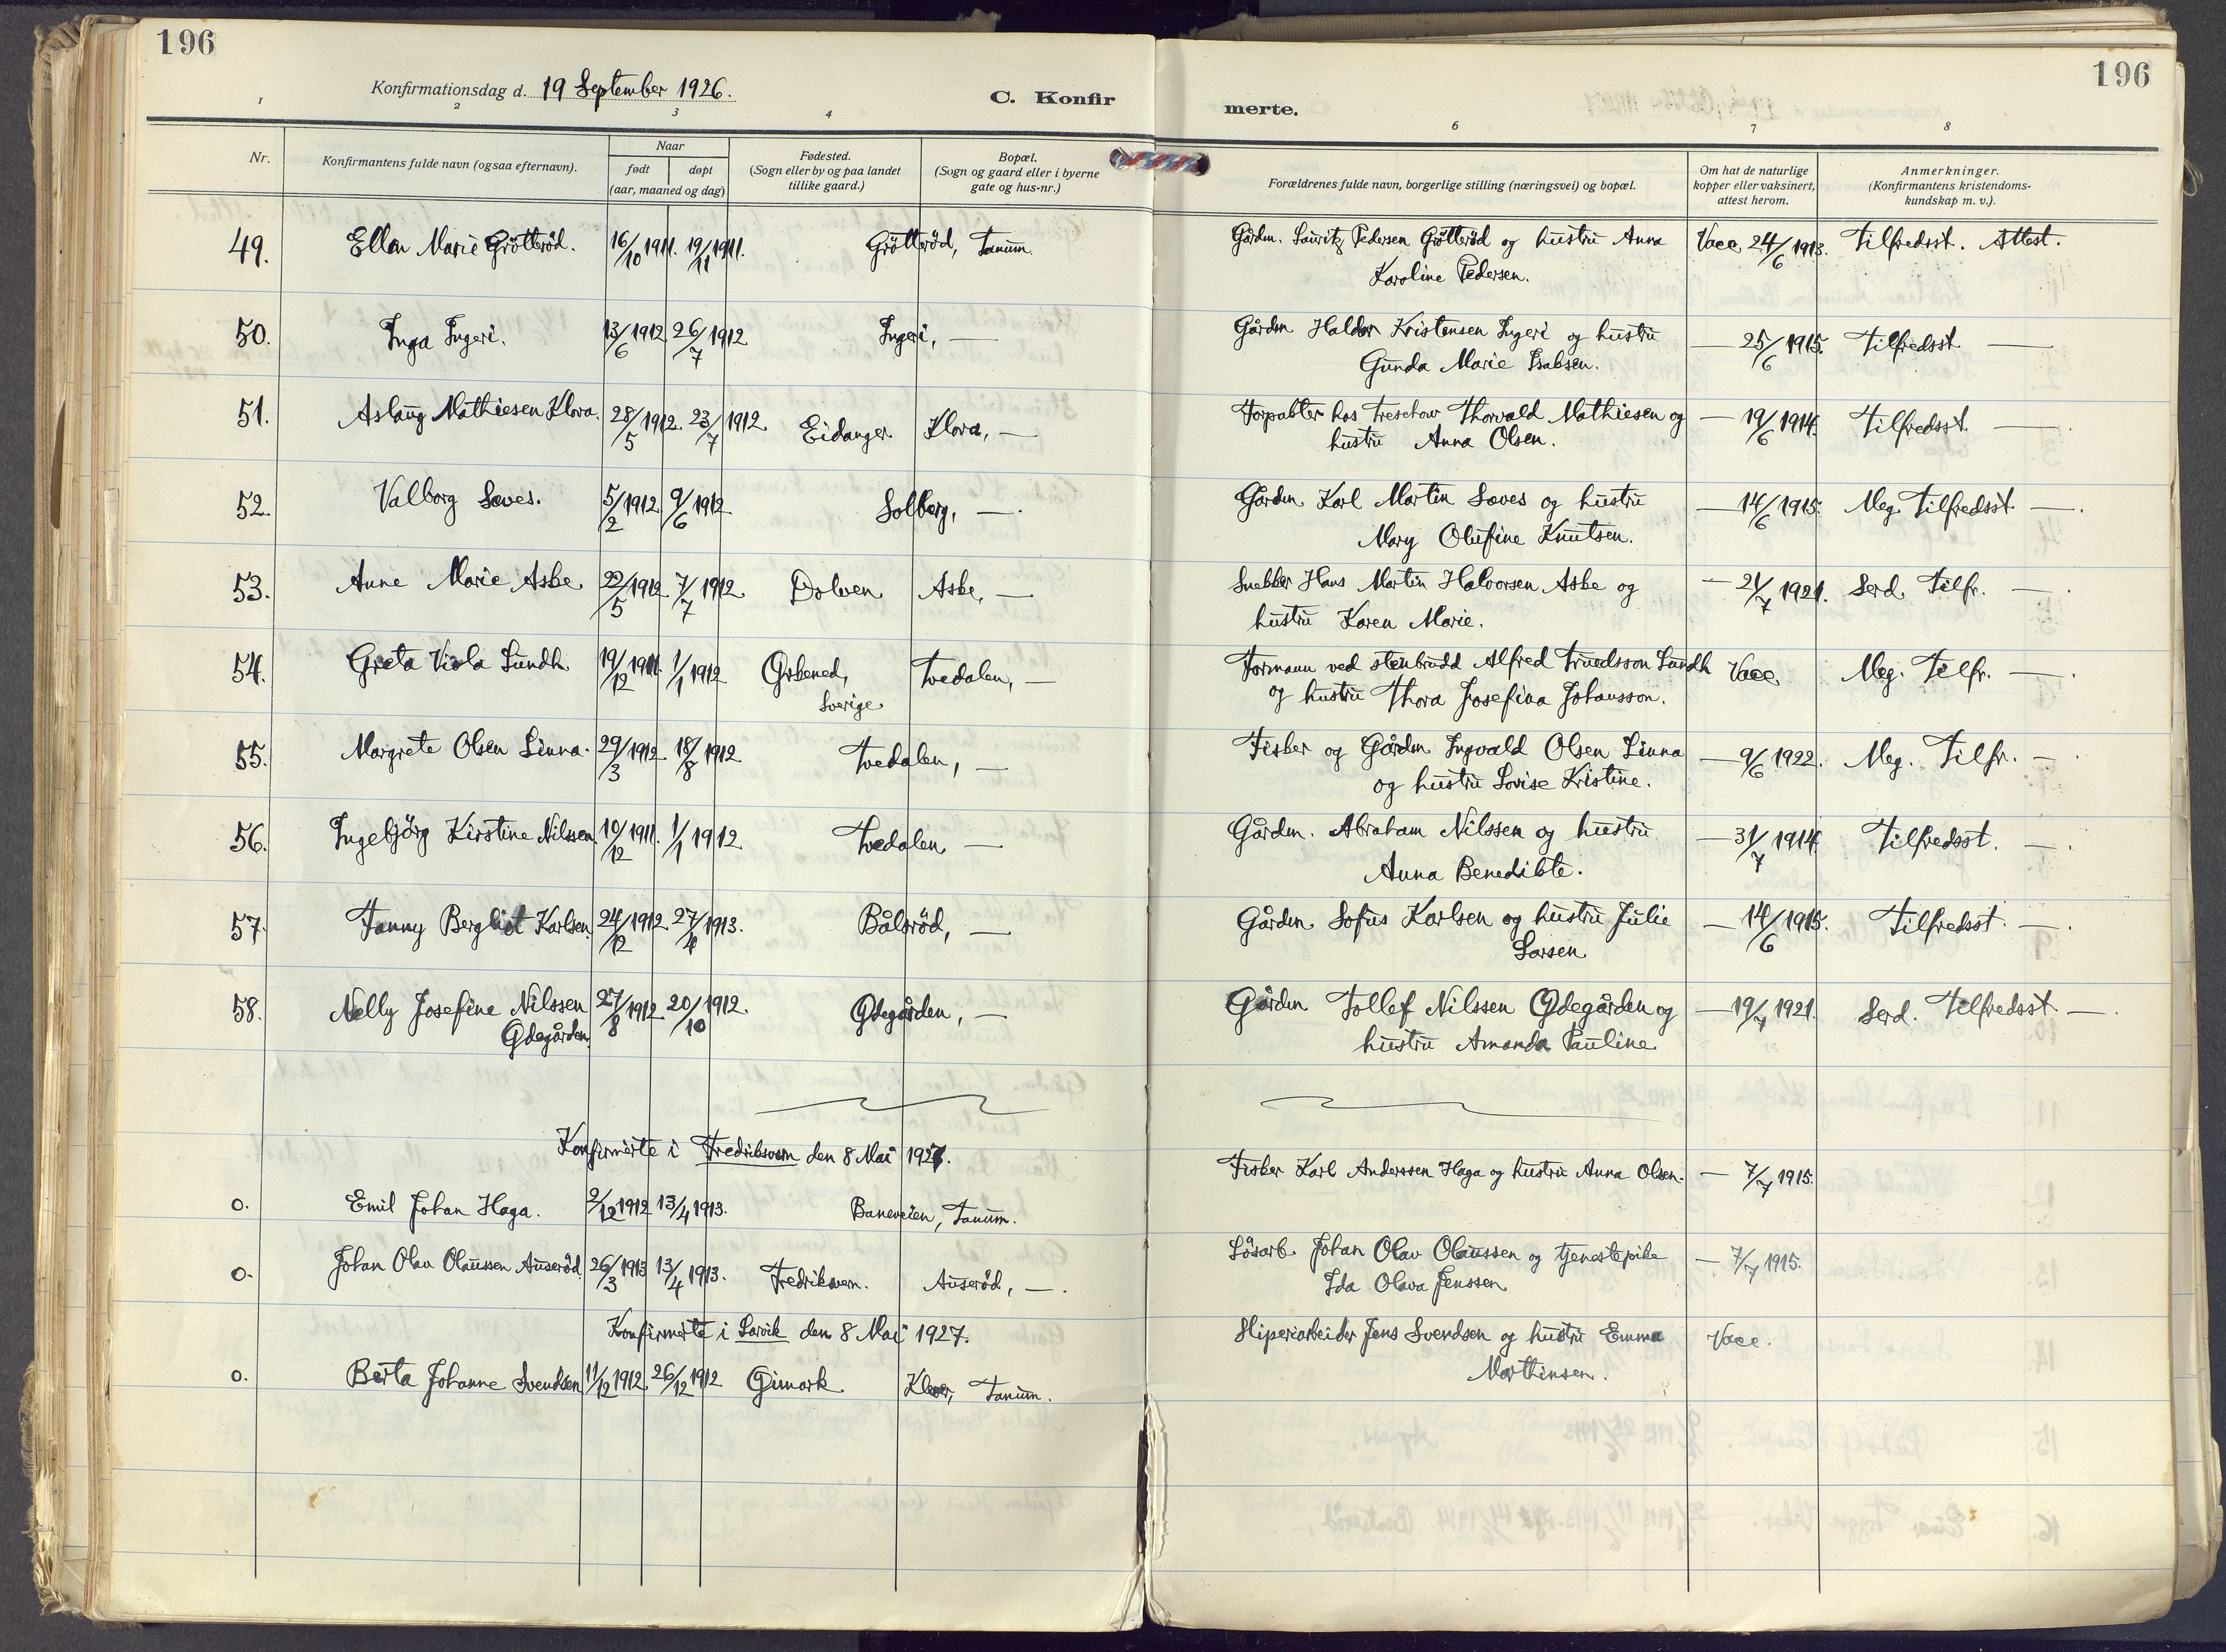 196
196
Konfirmationsdag d. 19 September 1926.
C. Konfir
merte.
1 2 3 4 6 7 8
Nr.
Konfirmantens fulde navn (ogsaa efternavn).
Naar
født døpt
(aar, maaned og dag)
Fødested.
(Sogn eller by og paa landet
tillike gaard.)
Bopæl.
(Sogn og gaard eller i byerne
gate og hus-nr.)
Forældrenes fulde navn, borgerlige stilling (næringsvei) og bopæl.
Om hat de naturlige
kopper eller vaksinert,
attest herom.
Anmerkninger.
(Konfirmantens kristendoms-
kundskap m. v.).
49. Ellen Marie Grötteröd. 16/10 1911. 19/11 1911. Grötteröd, Tanum. Gårdm. Lauritz Pedersen Grötteröd og hustru Anna Vacc. 24/6 1913. Tilfredsst. Attest.
Karoline Pedersen.
50. Inga Ingeri. 13/6 1912 26/7 1912 Ingeri, — Gårdm. Haldor Kristensen Ingeri og hustru — 25/6 1915. Tilfredsst. —
Gunda Marie Isaksen.
51. Aslaug Mathiesen Klova. 28/5 1912. 23/7 1912. Eidanger. Klova, — Forpakter hos Treschow Thorvald Mathiesen og — 19/6 1914. Tilfredsst. —
hustru Anna Olsen.
52. Valborg Saves. 5/2 1912. 9/6 1912. Solberg, — Gårdm. Karl Martin Saves og hustru — 14/6 1915. Meg. Tilfredsst. —
Mary Olufine Knutsen.
53. Anne Marie Aske 22/5 1912. 7/7 1912. Dolven Aske, — Snekker Hans Martin Halvorsen Aske og — 21/7 1921. Serd. Tilfr. —
hustru Karen Marie.
54. Greta Viola Lundh. 19/12 1911. 1/1 1912 Tvedalen, — Formann ved stenbrudd Alfred Truedsson Lundh Vacc. Meg. Tilfr. —
Sverige og hustru Thora Josefina Johansson.
55. Margrete Olsen Linna. 29/3 1912. 18/8 1912 Tvedalen, — Fisker og Gårdm. Ingvald Olsen Linna — 9/6 1922. Meg. Tilfr. —
og hustru Lovise Kristine.
56. Ingebjörg Kirstine Nilssen. 10/12 1911. 1/1 1912. Tvedalen — Gårdm. Abraham Nilssen og hustru — 31/7 1914. Tilfredsst. —
Anna Benedikte.
57. Fanny Bergliot Karlsen. 24/12 1912. 27/4 1913. Bålsröd, — Gårdm. Sofus Karlsen og hustru Julie — 14/6 1915. Tilfredsst. —
Larsen
58. Nelly Josefine Nilssen 27/8 1912. 20/10 1912. Ødegården, — Gårdm. Tollef Nilssen Ødegården og — 19/7 1921. Serd. Tilfredsst. —
Ødegården. hustru Amanda Pauline
Konfirmerte i Fredriksvern den 8 Mai 1927.
o. Emil Johan Haga. 2/12 1912 13/4 1913. Baneveien, Tanum. Fisker Karl Anderssen Haga og hustru Anna Olsen. — 7/7 1915.
o. Johan Olav Olaussen Auseröd. 26/3 1913 13/4 1913. Fredriksvern. Auseröd, — Lösarb. Johan Olav Olaussen og tjenestepike — 7/7 1915.
Ida Olava Jenssen.
Konfirmerte i Larvik den 8 Mai 1927.
o. Berta Johanne Svendsen 11/12 1912. 26/12 1912 Klever, Tanum. Sliperiarbeider Jens Svendsen og hustru Emma Vacc.
Marthinsen.